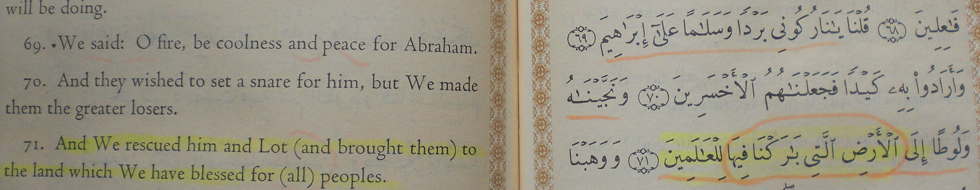 will be doing.
69. •We said: O fire, be coolness and peace for Abraham.
70. And they wished to set a snare for him, but We made
them the greater losers.
71. And We rescued him and Lot (and brought them) to
the land which We have blessed for (all) peoples.
فَـٰعِلِينَ ﴿٦٨﴾ قُلْنَا يَـٰنَارُ كُونِى بَرْدًا وَسَلَـٰمًا عَلَىٰٓ إِبْرَٰهِيمَ ﴿٦٩﴾
وَأَرَادُوا۟ بِهِۦ كَيْدًا فَجَعَلْنَـٰهُمُ ٱلْأَخْسَرِينَ ﴿٧٠﴾ وَنَجَّيْنَـٰهُ
وَلُوطًا إِلَى ٱلْأَرْضِ ٱلَّتِى بَـٰرَكْنَا فِيهَا لِلْعَـٰلَمِينَ ﴿٧١﴾ وَوَهَبْنَا